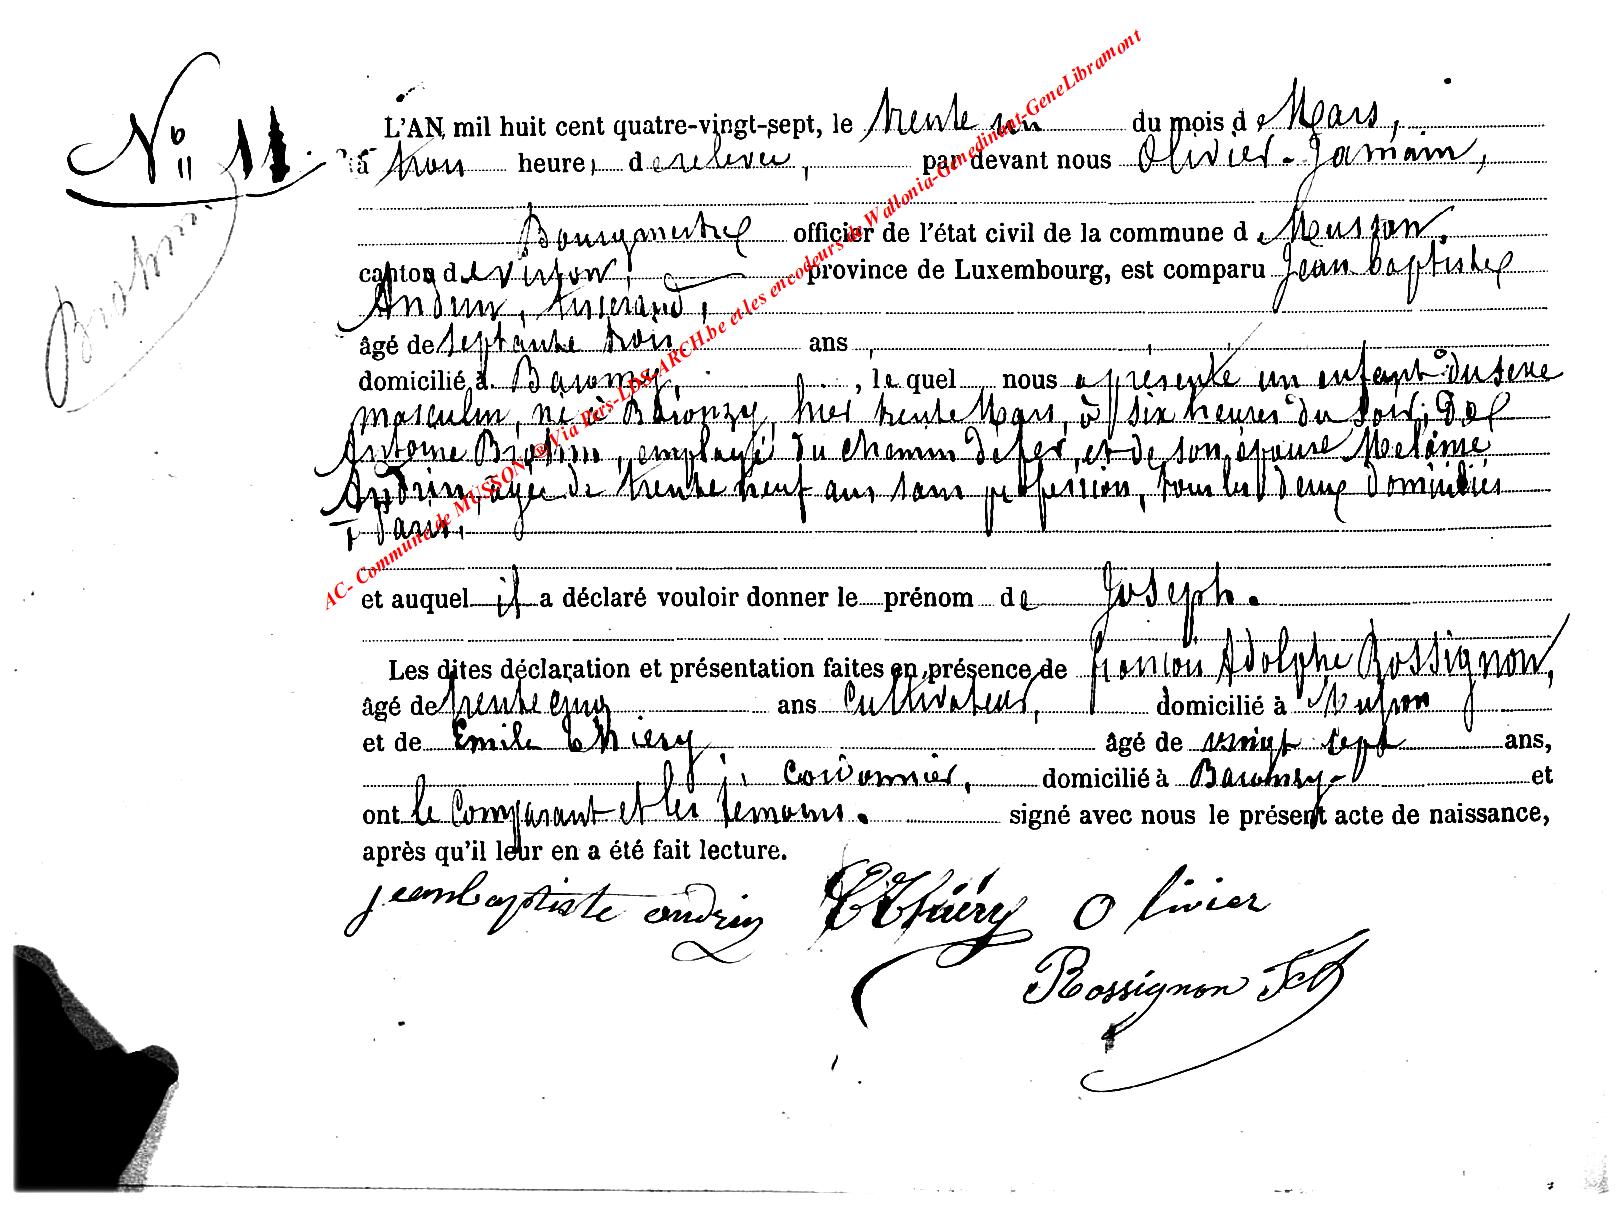 N° 11
L'AN mil huit cent quatre-vingt-sept, le trente un du mois de Mars,
à trois heures de relevée, par devant nous Olivier Jamain,
Bourgmestre officier de l'état civil de la commune de Musson,
canton de Virton, province de Luxembourg, est comparu Jean baptiste
Andrin, tisserand,
âgé de septante trois ans,
domicilié à Baronzy, lequel nous a présenté un enfant du sexe
masculin, né à Baronzy, hier trente Mars, à six heures du soir, de
Antoine employé du chemin de fer, et de son épouse Mélanie
Andrin, agée de trente neuf ans sans profession, tous les deux domiciliés
à Paris,
et auquel il a déclaré vouloir donner le prénom de Joseph.
Les dites déclaration et présentation faites en présence de francois Adolphe Rossignon,
âgé de trente cinq ans Cultivateur, domicilié à Musson
et de Emile Thiery, âgé de vingt sept ans,
cordonnier, domicilié à Baronzy et
ont le Comparant et les témoins. signé avec nous le présent acte de naissance,
après qu'il leur en a été fait lecture.
jean baptiste andrin EThiéry Olivier
Rossignon
AC- Commune de MUSSON ® Via Pers-LDS-ARCH.be et les encodeurs de Wallonia-Genedinant-GeneLibramont